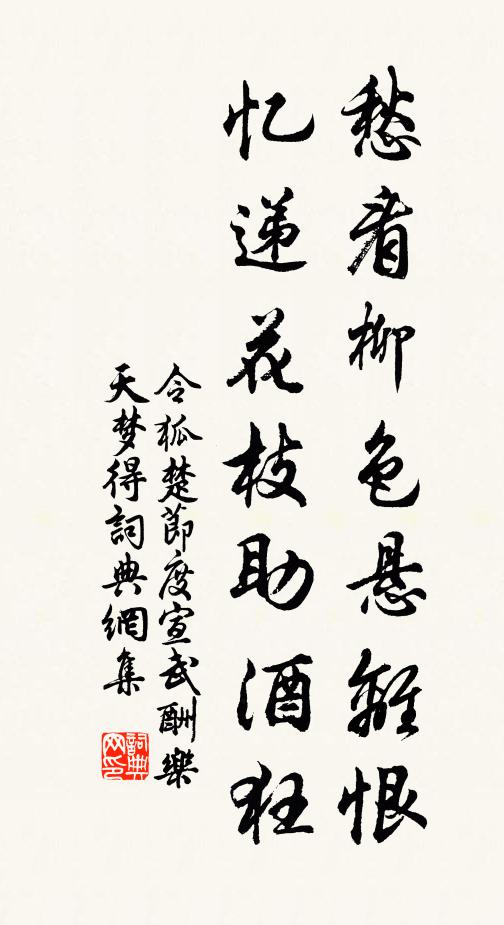 愁看柳色悬離恨
忆递花枝助酒狂
令狐楚節度宣武酬樂
天梦得詞典網集
詞典
网印